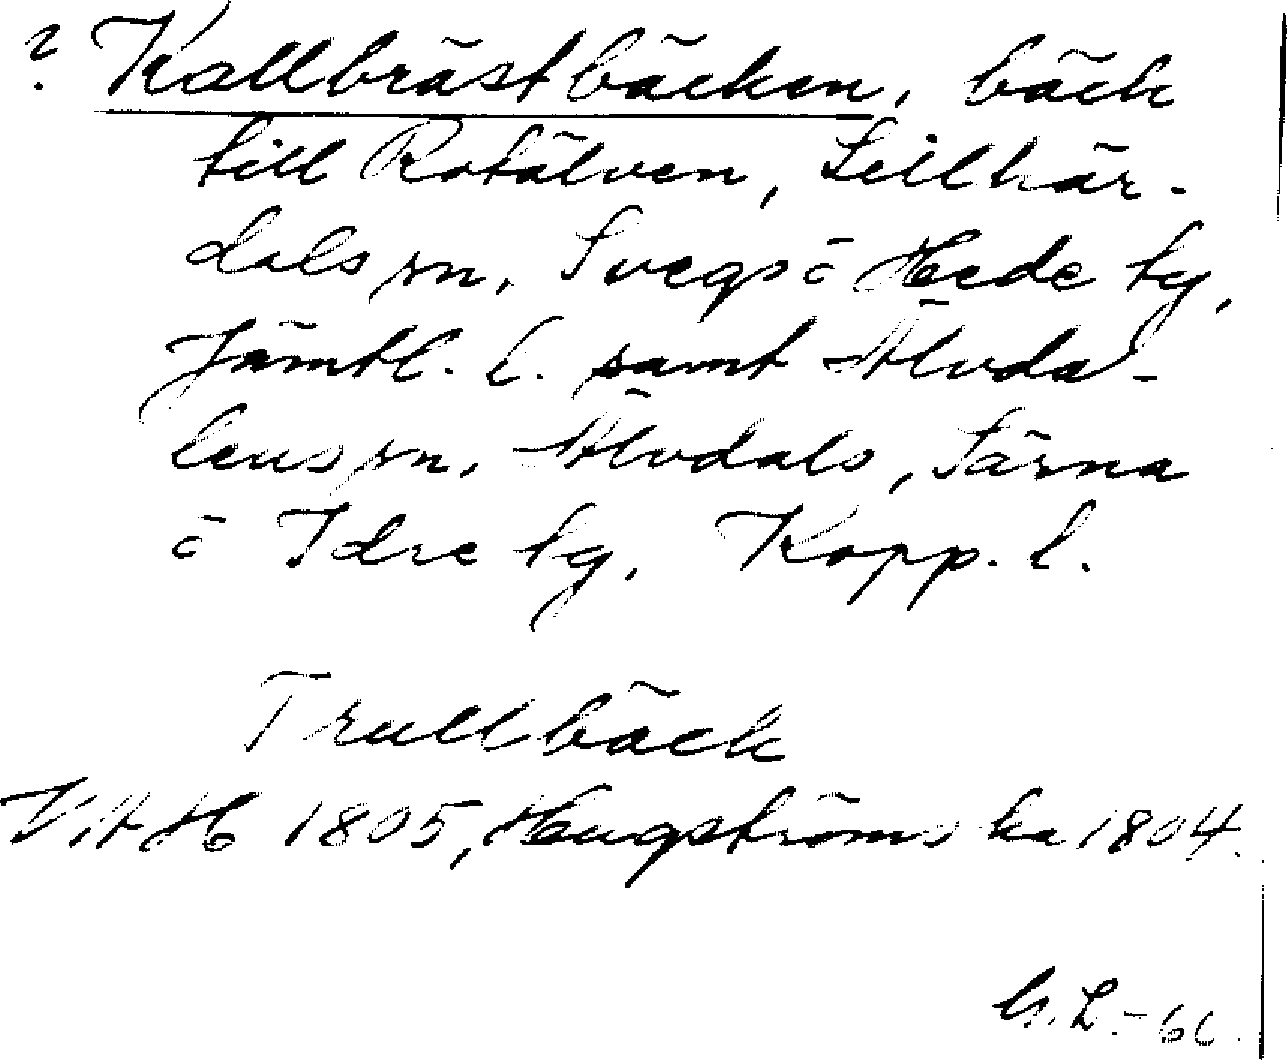 ? Kallbrästbäcken, bäck
till Rotälven, Lillhär-
dals sn, Svegs o Hede tg,
Jämtl. l. samt Älvda-
lens sn, Älvdals, Särna
o Idre tg, Kopp. l.
Trullbäck
VAH 1805, Hengströms ka 1804.
G. L. -60.